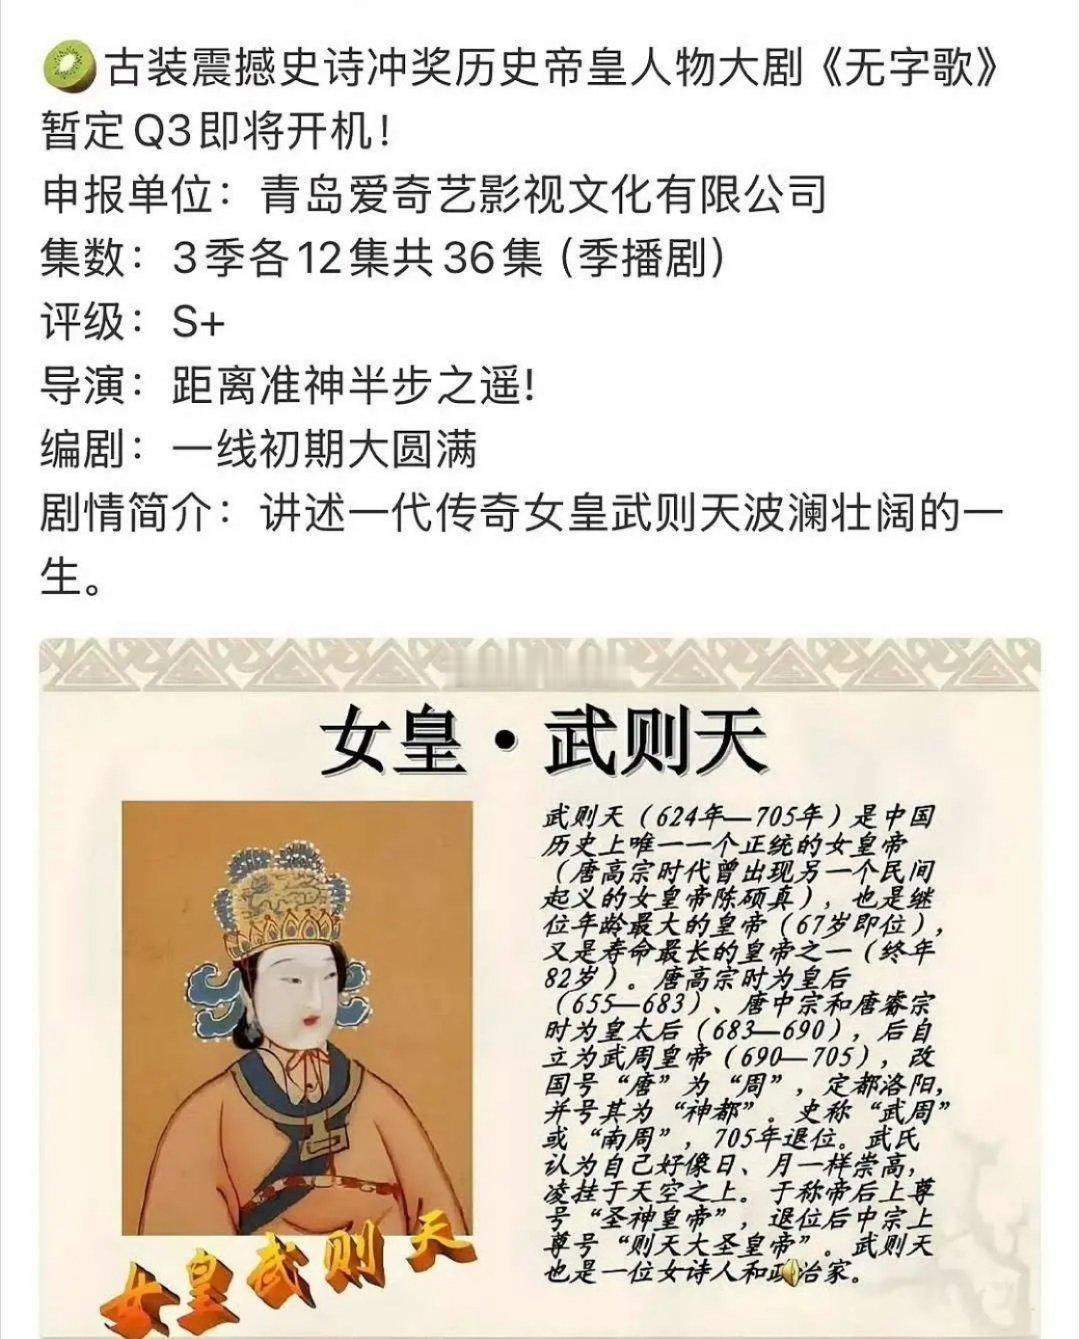 古装震撼史诗冲奖历史帝皇人物大剧《无字歌》
暂定Q3即将开机！
申报单位：青岛爱奇艺影视文化有限公司
集数：3季各12集共36集（季播剧）
评级：S+
导演：距离准神半步之遥!
编剧：一线初期大圆满
剧情简介：讲述一代传奇女皇武则天波澜壮阔的一
生。
女皇·武则天
武则天（624年—705年）是中国
历史上唯一一个正统的女皇帝
（唐高宗时代曾出现另一个民间
起义的女皇帝陈硕真），也是继
位年龄最大的皇帝（67岁即位），
又是寿命最长的皇帝之一（终年
82岁）。唐高宗时为皇后
（655—683）、唐中宗和唐睿宗
时为皇太后（683—690），后自
立为武周皇帝（690—705），改
国号“唐”为“周”，定都洛阳，
并号其为“神都”。史称“武周”
或“南周”，705年退位。武氏
认为自己好像日、月一样崇高，
凌挂于天空之上。于称帝后上尊
号“圣神皇帝”，退位后中宗上
尊号“则天大圣皇帝”。武则天
也是一位女诗人和政治家。
女皇武则天